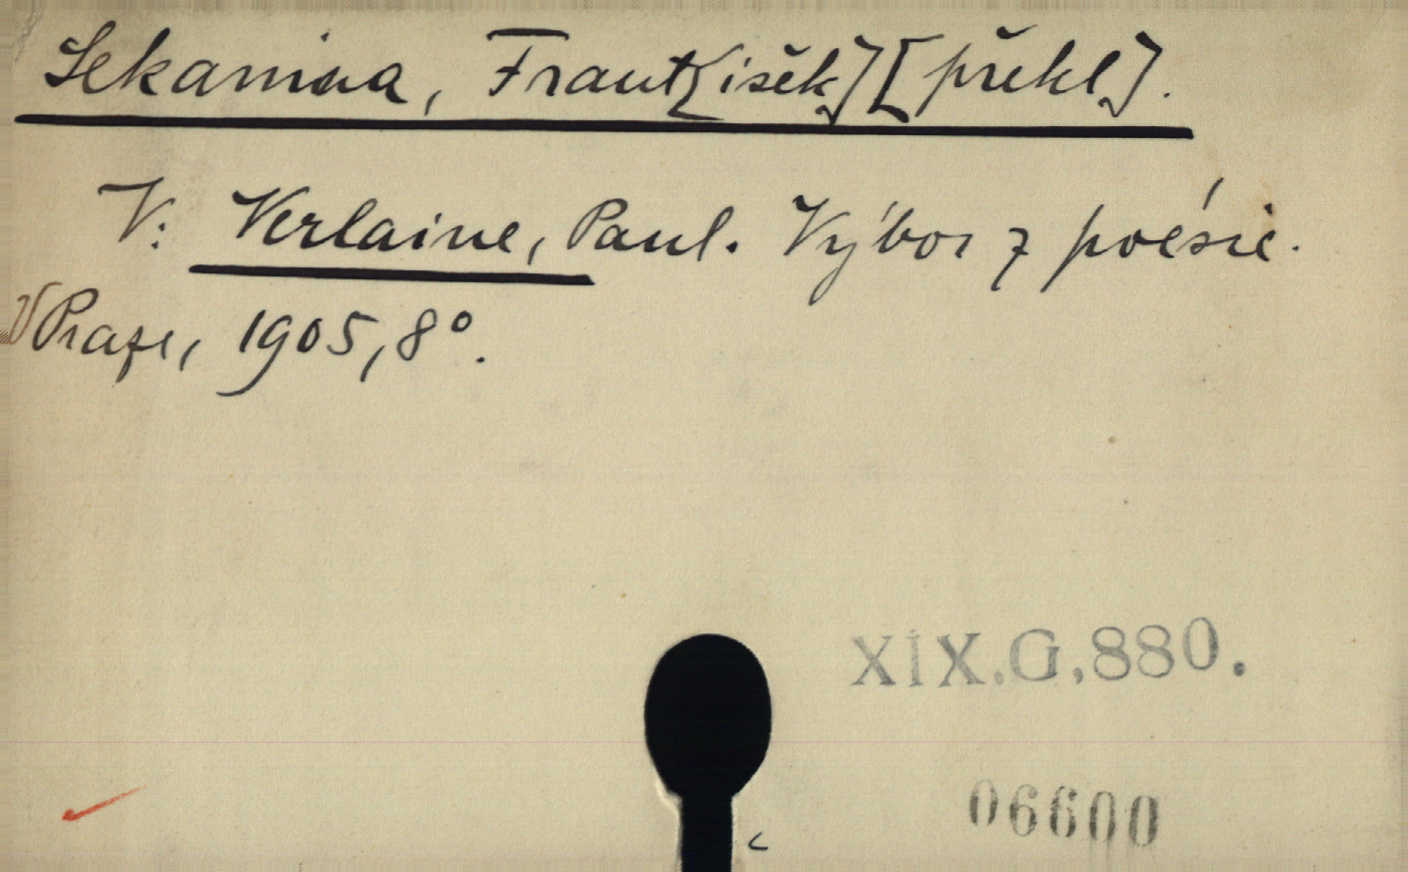 Sekanina, Frant[išek] [překl].
V: Verlaine, Paul. Výbor z poésie.
V Praze, 1905, 8°.
XIX.G.880.
06600